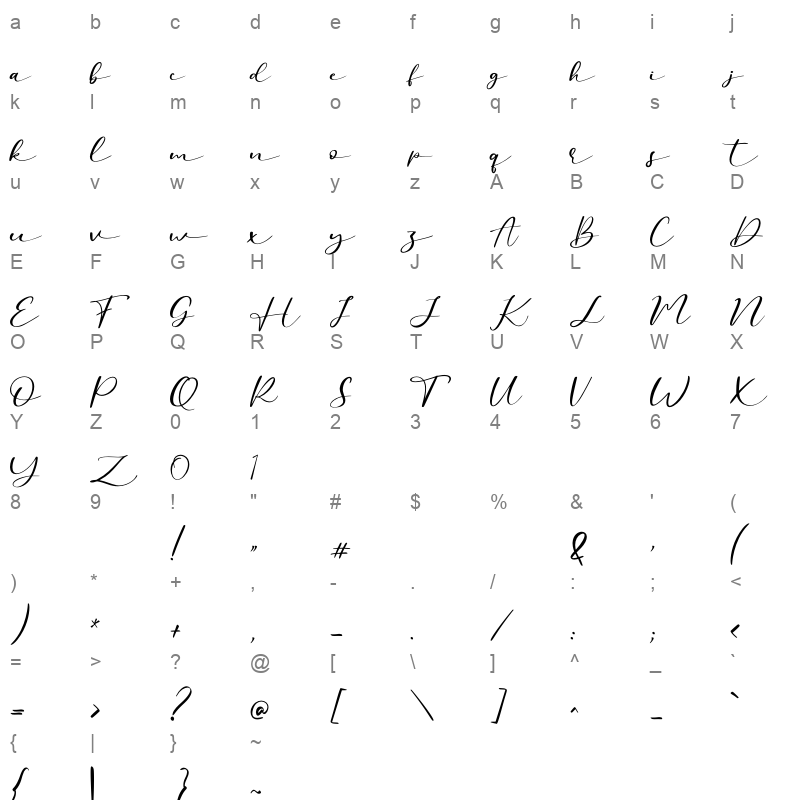 a b c d e f g h i j
a b c d e f g h i j
k l m n o p q r s t
k l m n o p q r s t
u v w x y z A B C D
u v w x y z A B C D
E F G H I J K L M N
E F G H I J K L M N
O P Q R S T U V W X
O P Q R S T U V W X
Y Z 0 1 2 3 4 5 6 7
Y Z 0 1
8 9 ! " # $ % & ' (
! " # & ' (
) * + , - . / : ; <
) * + , - . / : ; <
= > ? @ [ \ ] ^ _ `
= > ? @ [ \ ] ^ _ `
{ | } ~
{ | } ~